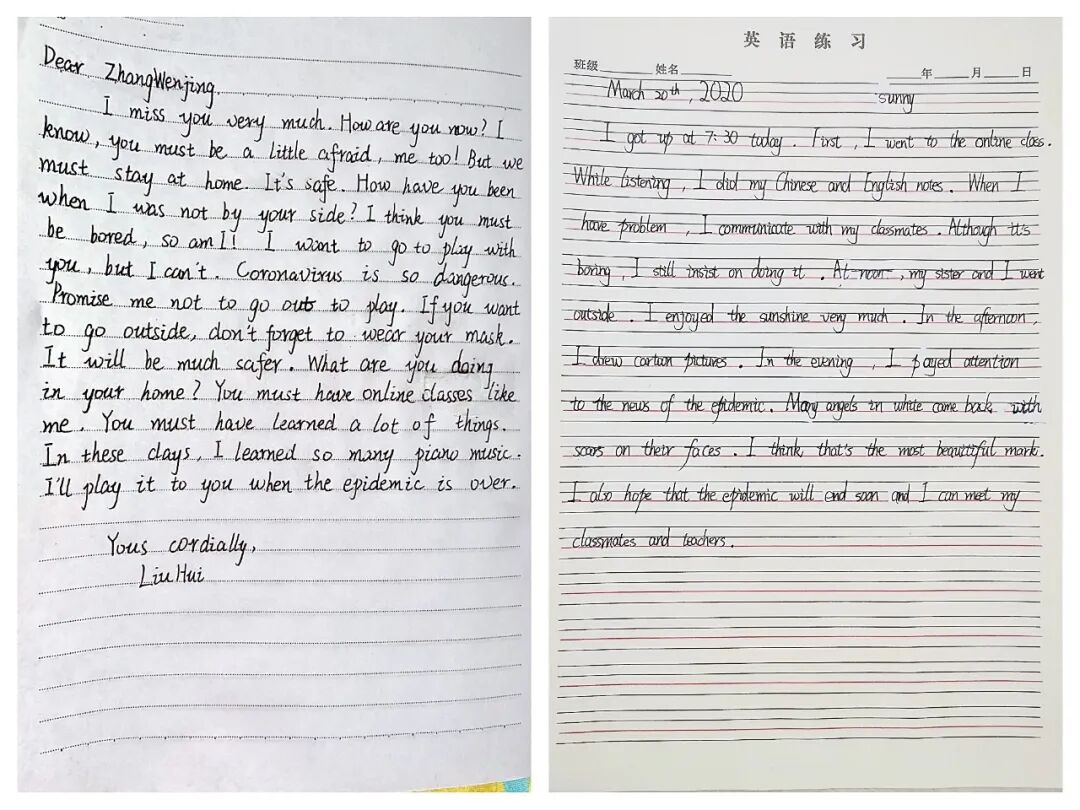 Dear ZhangWenjing
I miss you very much. How are you now? I
know, you must be a little afraid, me too! But we
must stay at home. It's safe. How have you been
when I was not by your side? I think you must
be bored, so am I! I want to go to play with
you, but I can't. Coronavirus is so dangerous.
Promise me not to go out to play. If you want
to go outside, don't forget to wear your mask.
It will be much safer. What are you doing
in your home? You must have online classes like
me. You must have learned a lot of things.
In these days, I learned so many piano music.
I'll play it to you when the epidemic is over.
Yous cordially,
Liu Hui
英 语 练 习
班级 姓名 年 月 日
March 20th, 2020 sunny
I got up at 7:30 today. First, I went to the online class.
While listening, I did my Chinese and English notes. When I
have problem, I communicate with my classmates. Although it's
boring, I still insist on doing it. At noon, my sister and I went
outside. I enjoyed the sunshine very much. In the afternoon,
I drew cartoon pictures. In the evening, I payed attention
to the news of the epidemic. Many angels in white come back with
scars on their faces. I think, that's the most beautiful mark.
I also hope that the epidemic will end soon and I can meet my
classmates and teachers.